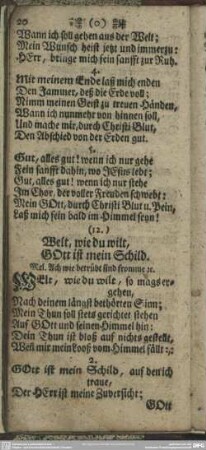 20 (0)
Wann ich soll gehen aus der Welt;
Mein Wunsch heist jetzt und immerzu:
HErr, bringe mich fein sanfft zur Ruh.
4.
Mit meinem Ende laß mich enden
Den Jammer, deß die Erde voll:
Nimm meinen Geist zu treuen Händen,
Wann ich nunmehr von hinnen soll,
Und mache mir, durch Christi Blut,
Den Abschied von der Erden gut.
5.
Gut, alles gut! wenn ich nur gehe
Fein sanffte dahin, wo JEsus lebt;
Gut, alles gut! wenn ich nur stehe
Im Chor, der voller Freuden schwebt;
Mein GOtt, durch Christi Blut u. Pein,
Laß mich fein bald im Himmel seyn!
(12.)
Welt, wie du wilt,
GOtt ist mein Schild.
Mel. Ach wie betrübt sind fromme ꝛc.
Welt, wie du wilt, so mags er-
gehen,
Nach deinem längst bethörten Sinn;
Mein Thun soll stets gerichtet stehen
Auf GOtt und seinen Himmel hin:
Dein Thun ist bloß auf nichts gestellt,
Weil mir mein Looß vom Himmel fällt:,:
2.
GOtt ist mein Schild, auf den ich
traue,
Der HErr ist meine Zuversicht;
GOtt